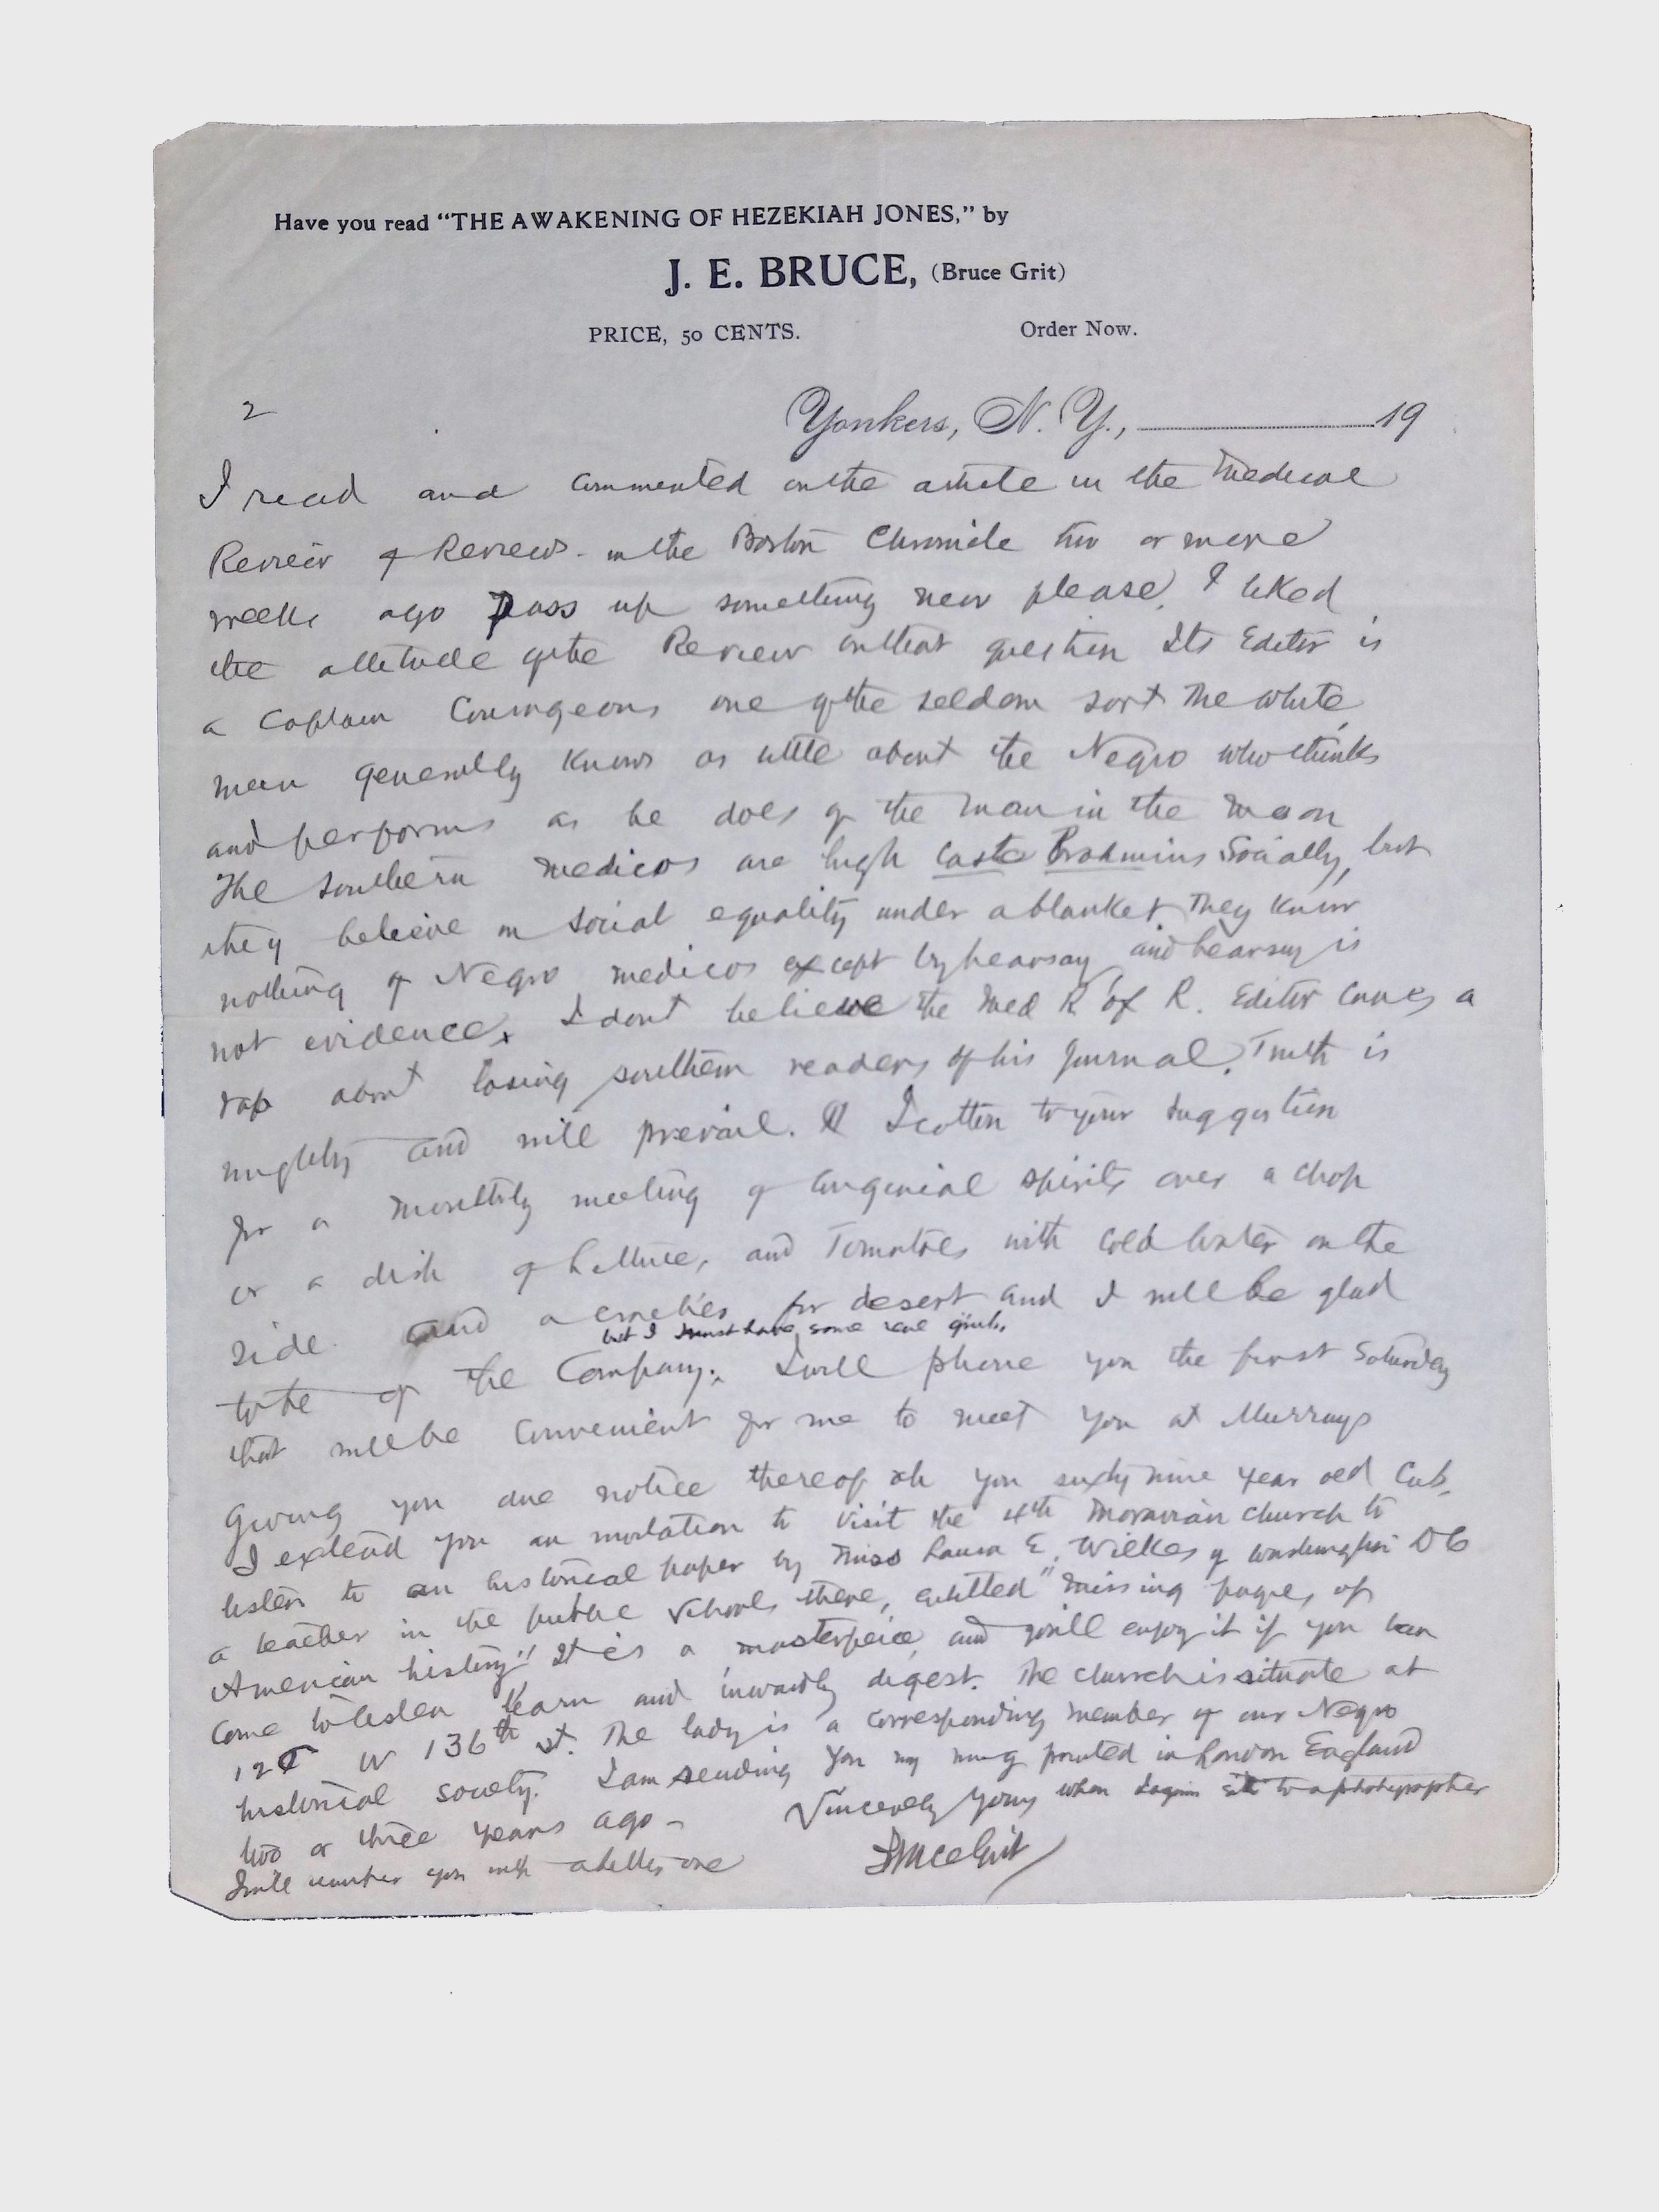 Have you read "THE AWAKENING OF HEZEKIAH JONES," by
J. E. BRUCE, (Bruce Grit)
PRICE, 50 CENTS. Order Now.
2
Yonkers, N. Y., 19
I read and commented on the article in the Medical
Review of Reviews in the Boston Chronicle two or more
weeks ago Pass up something new please. I liked
the attitude of the Review on that question Its Editor is
a Captain Courageous one of the seldom sort The white
man generally knows as little about the Negro who thinks
and performs as he does of the man in the moon
The Southern medicos are high caste Brahmins Socially, but
they believe in social equality under a blanket They know
nothing of Negro medicos except by hearsay and hearsay is
not evidence. I dont believe the Med R of R. Editor cares a
rap about losing southern readers of his Journal. Truth is
mighty and will prevail. I cotton to your suggestion
for a monthly meeting of congenial spirits over a chop
or a dish of Lettuce, and Tomatoes with cold water on the
side and a for desert and I will be glad
but I must have some real
to be of the Company. I will phone you the first Saturday
that will be convenient for me to meet you at Murrays
Giving you due notice thereof oh you sixty nine year old Cub.
I extend you an invitation to visit the 4th Moravian church to
listen to an historical paper by Miss Laura E. Wilkes of Washington D C
a teacher in the public schools there, entitled "Missing pages of
American history" It is a masterpeice, and youll enjoy it if you can
come to listen learn and inwardly digest. The church is situate at
W 136th st. The lady is a corresponding member of our Negro
historical society. I am sending you my mug printed in London England
two or three years ago - Sincerely yours when I again sit to a photographer
I will number you with
Bruce Grit